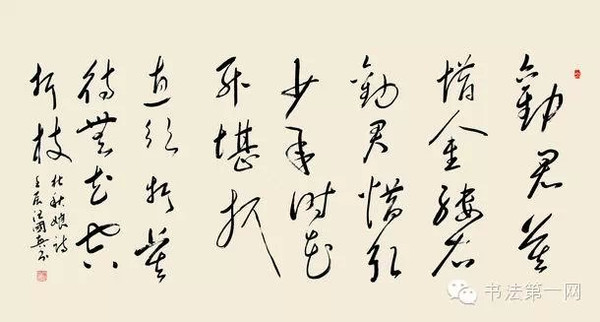 勸君莫
惜金縷衣
勸君惜取
少年时花
开堪折
直须折莫
待無花空
折枝
杜秋娘诗
壬辰汪國真书
书法第一网